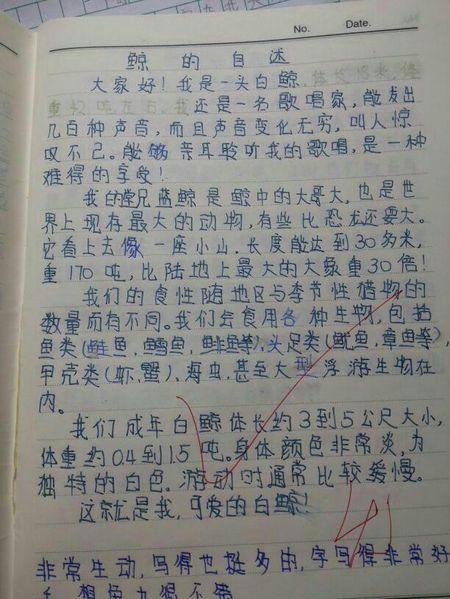 No. Date.
鲸 的 自 述
大家好！我是一头白鲸,体长18米,体
重  吨左右。我还是一名歌唱家，能发出
几百种声音，而且声音变化无穷，叫人惊
叹不己。能够亲耳聆听我的歌唱，是一种
难得的享受！
我的堂兄蓝鲸是鲸中的大哥大，也是世
界上现存最大的动物，有些比恐龙还要大。
它看上去像一座小山.长度能达到30多米，
重170吨，比陆地上最大的大象重30倍！
我们的食性随地区与季节性猎物的
数量而有不同。我们会食用各种生物，包括
鱼类(鲑鱼,鳕鱼,鲱鱼等),头足类(鱿鱼,章鱼等),
甲壳类(虾.蟹).海虫.甚至大型浮游生物在
内。
我们成年白鲸体长约3到5公尺大小,
体重约0.4到1.5吨。身体颜色非常淡，为
独特的白色。游动时通常比较缓慢。
这就是我,可爱的白鲸！
非常生动，写得也挺多的，字写得非常好
想象力很不错